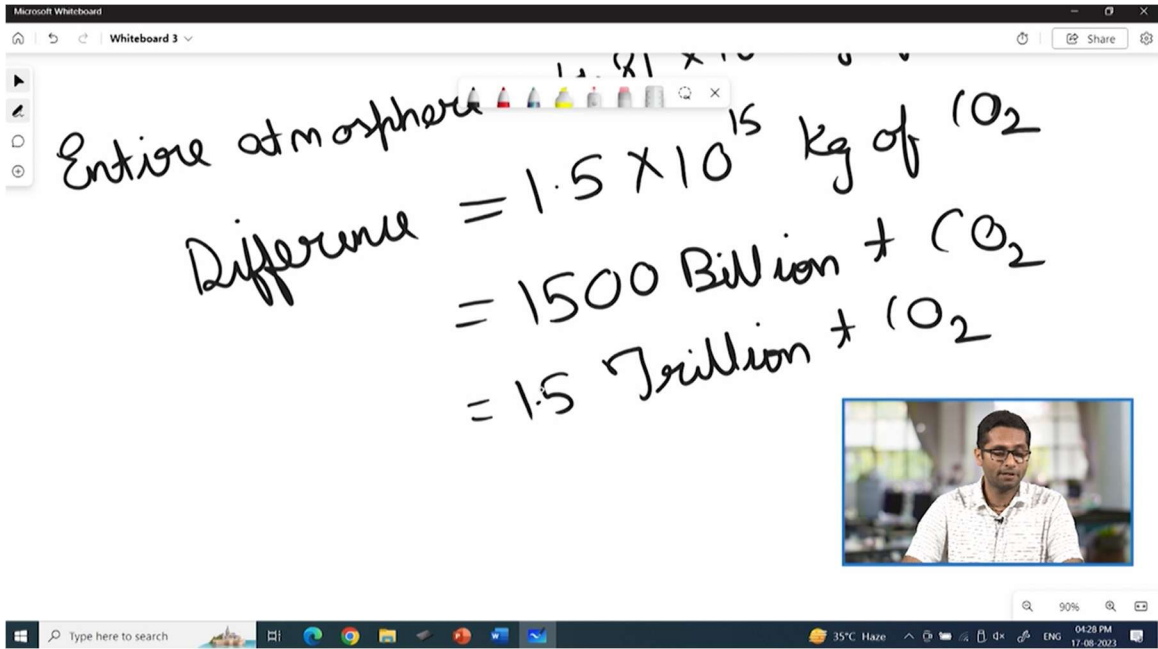 Microsoft Whiteboard
Whiteboard 3
Share
Entire atmosphere
Difference = 1.5 × 10¹⁵ kg of CO₂
= 1500 Billion t CO₂
= 1.5 Trillion t CO₂
90%
Type here to search
35°C Haze
ENG
04:28 PM
17-08-2023